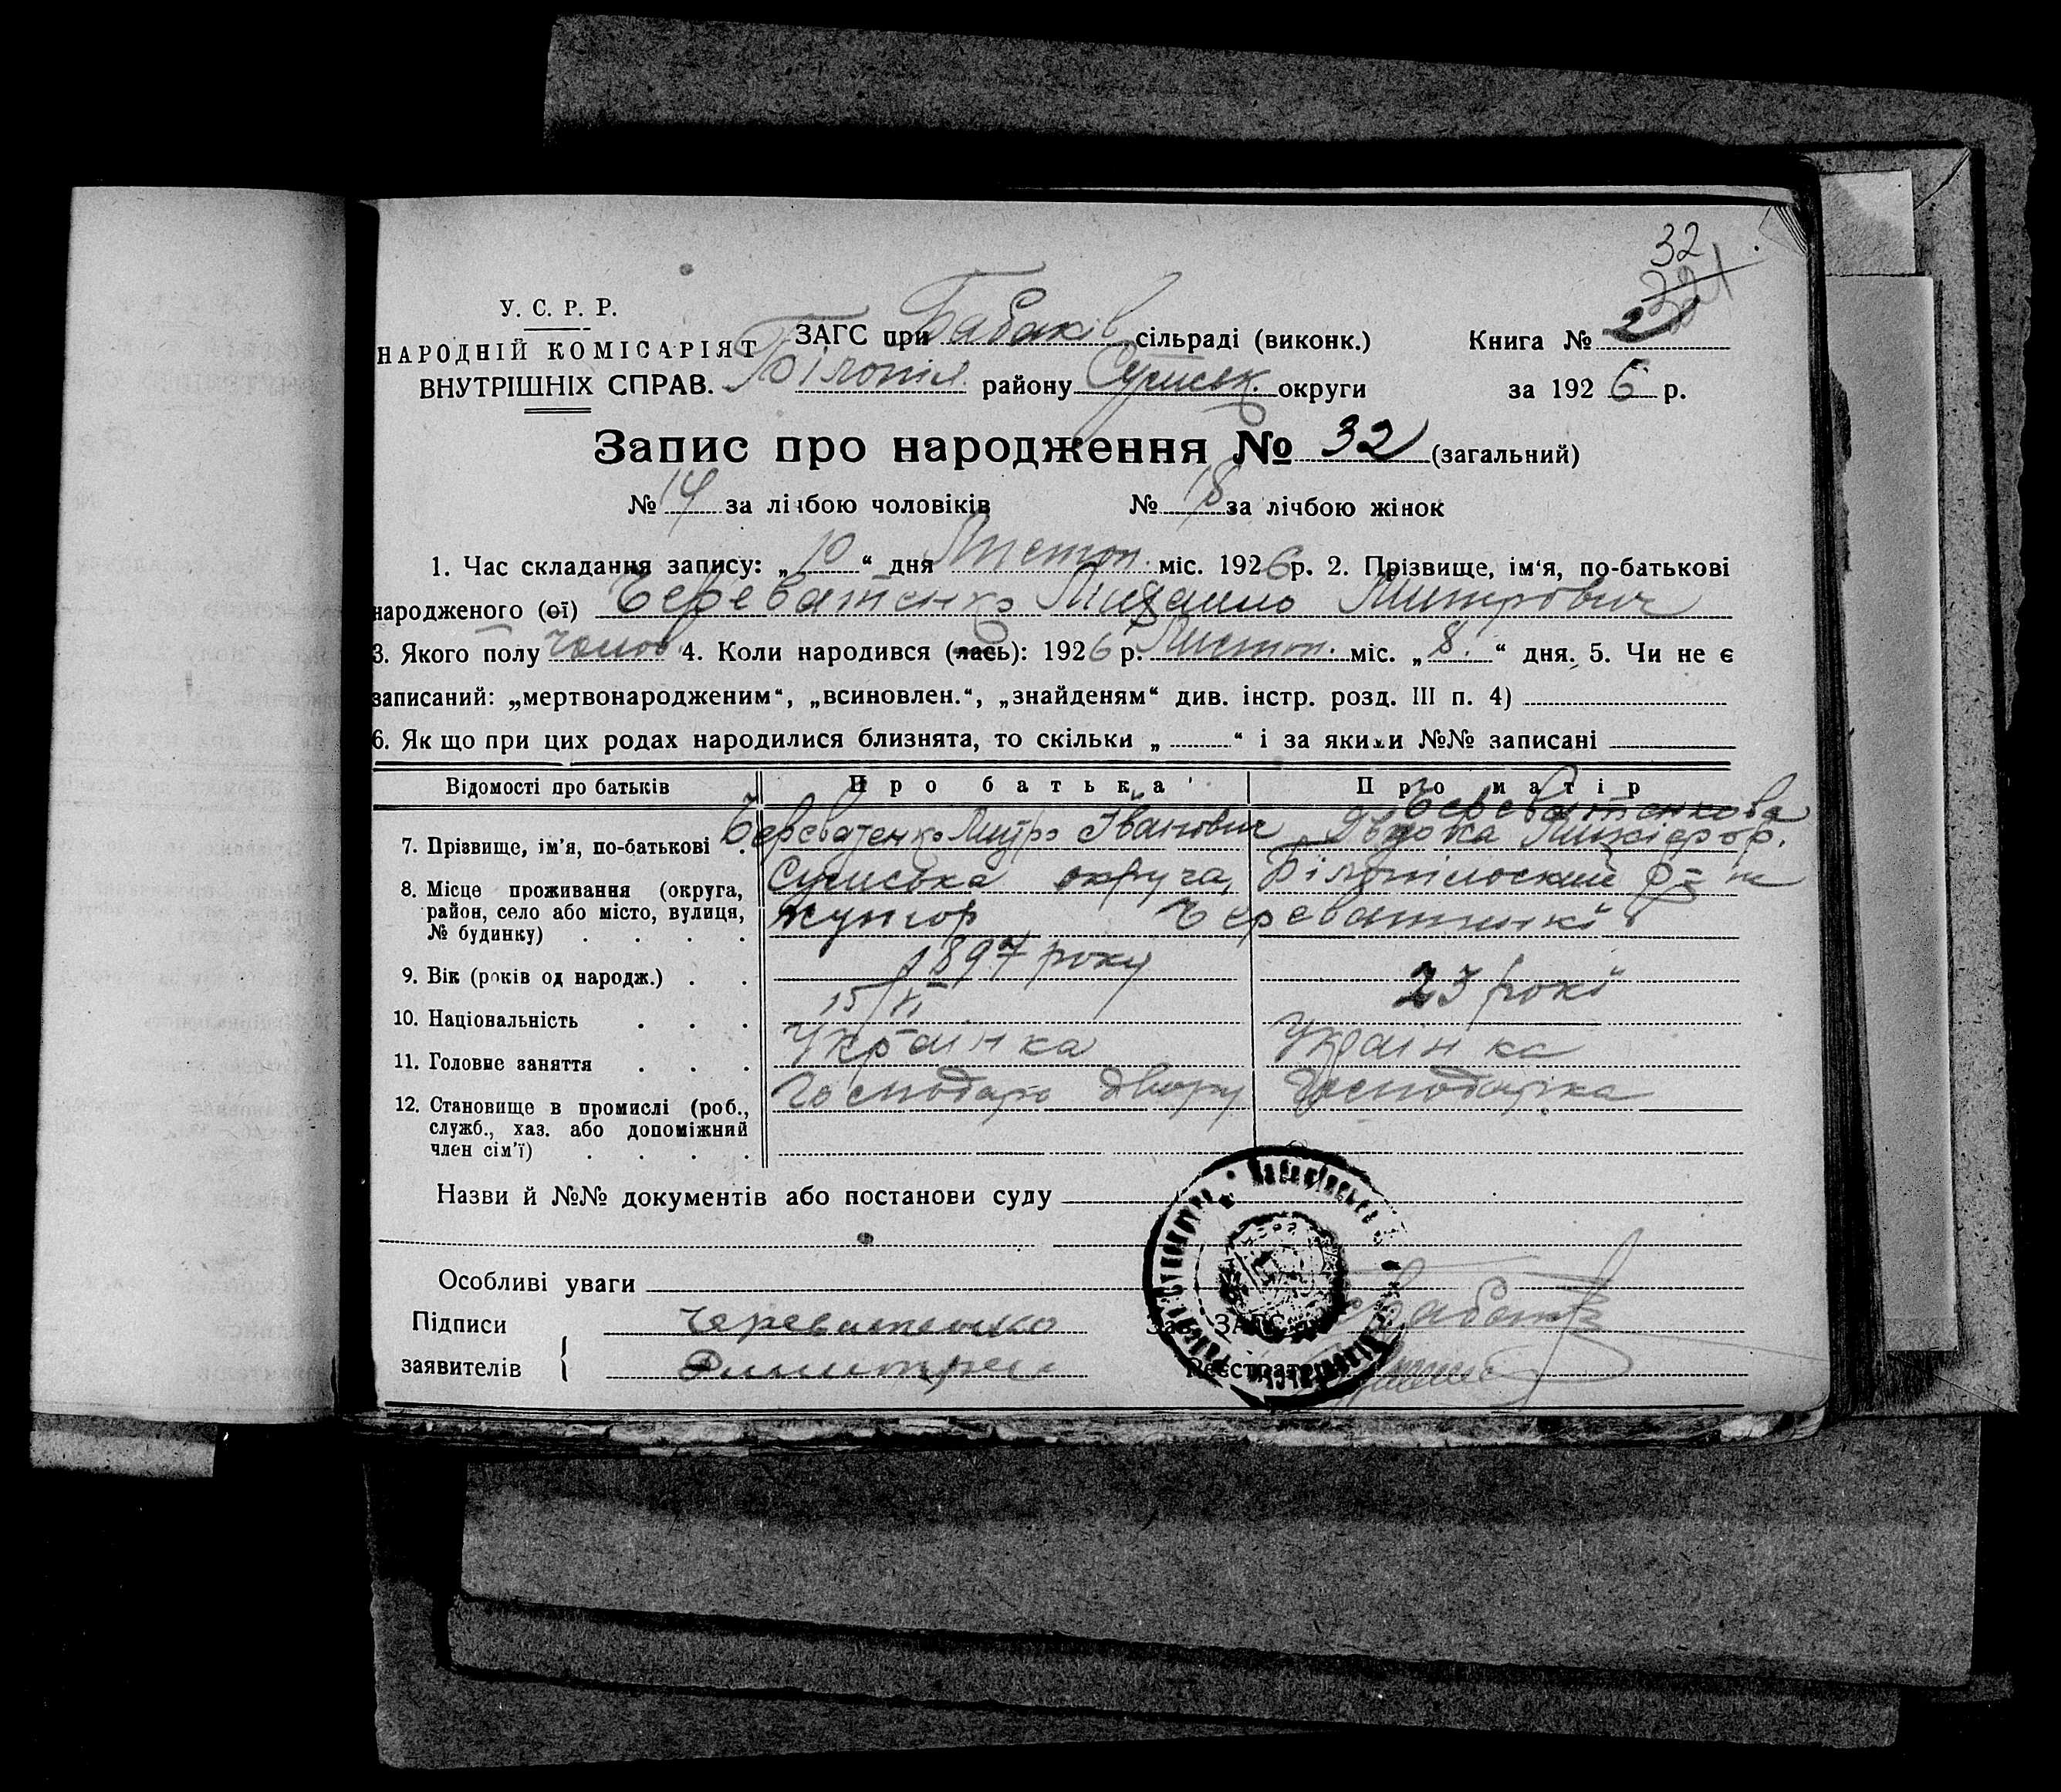 32
У. С. Р. Р.
НАРОДНІЙ КОМІСАРІЯТ
ВНУТРІШНІХ СПРАВ.
ЗАГС при Бабаків сільраді (виконк.)
Книга № 2
Білопіл. району Сумськ. округи
за 1926 р.
Запис про народження № 32 (загальний)
№ 14 за лічбою чоловіків № 18 за лічбою жінок
1. Час складання запису: „10“ дня Листоп. міс. 1926 р. 2. Прізвище, ім‘я, по-батькові
народженого (ої) Череватенко Михайло Митрович
3. Якого полу чолов. 4. Коли народився (лась): 1926 р. Листоп. міс. „8.“ дня. 5. Чи не є
записаний: „мертвонародженим“, „всиновлен.“, „знайденям“ див. інстр. розд. III п. 4)
6. Як що при цих родах народилися близнята, то скільки „ “ і за якими №№ записані
Відомості про батьків Про батька Про матір
7. Прізвище, ім‘я, по-батькові . Череватенко Митро Іванович Череватенкова
Явдоха Никіфор.
8. Місце проживання (округа,
район, село або місто, вулиця,
№ будинку) . . . .
Сумська округа, Білопільский р-н
хутор Череватенкі
9. Вік (років од народж.) . . 1897 року 23 рокі
15/VI
10. Національність . . . Українка Українка
11. Головне заняття . . . Господарь двору Господарка
12. Становище в промислі (роб.,
служб., хаз. або допоміжний
член сім'ї) . . . .
Назви й №№ документів або постанови суду
Особливі уваги
Підписи
заявителів
Череватенко
Димитрей
Зав. ЗАГС
Реєстратор